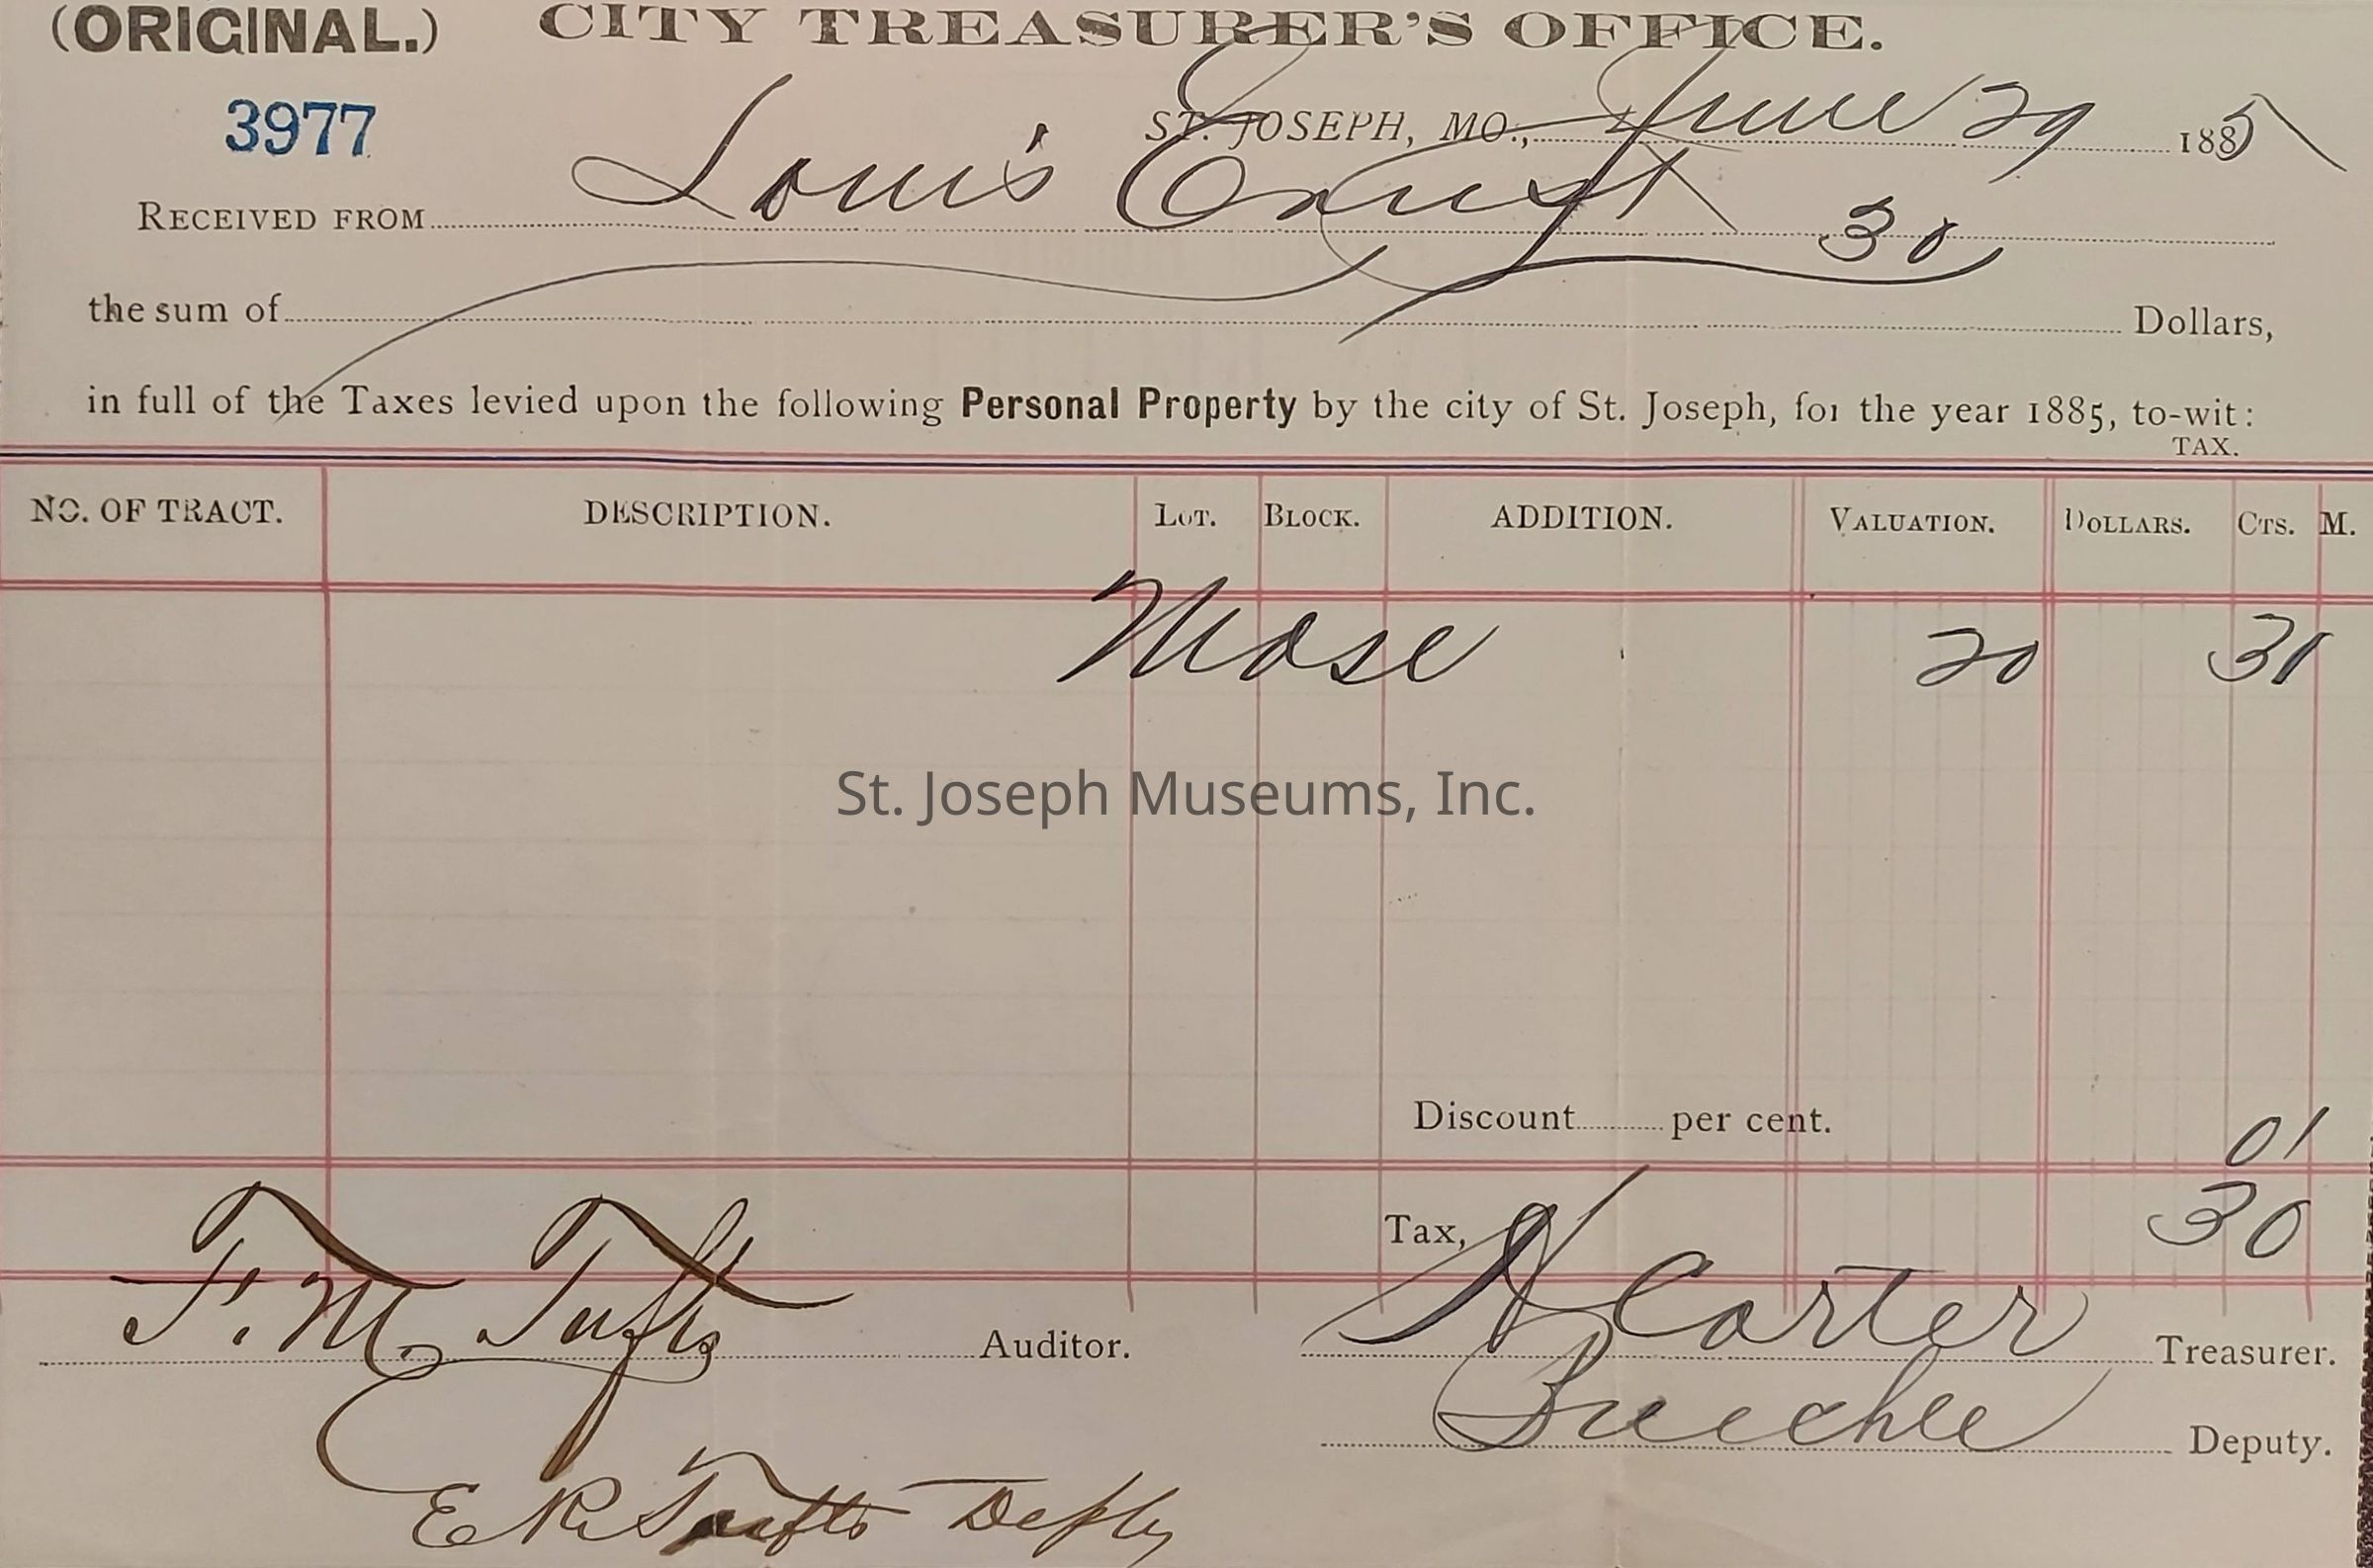 (ORIGINAL.) CITY TREASURER'S OFFICE.
3977 ST. JOSEPH, MO., June 29 1885
RECEIVED FROM Louis Ernst
30
the sum of Dollars,
in full of the Taxes levied upon the following Personal Property by the city of St. Joseph, for the year 1885, to-wit:
TAX.
NO. OF TRACT. DESCRIPTION. LOT. BLOCK. ADDITION. VALUATION. DOLLARS. CTS. M.
Mdse 20 31
St. Joseph Museums, Inc.
Discount per cent. 01
Tax, 30
F. M. Tufts Auditor. Carter Treasurer.
Deputy.
E R Tufts Depty